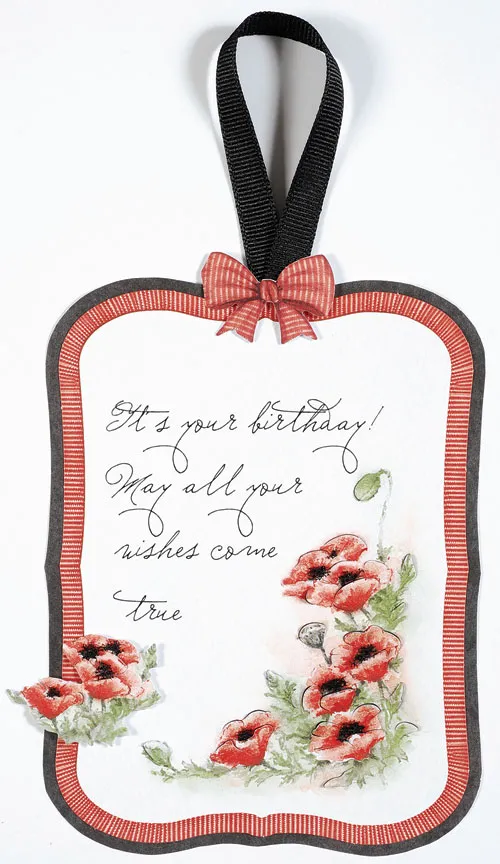 It's your birthday!
May all your
wishes come
true